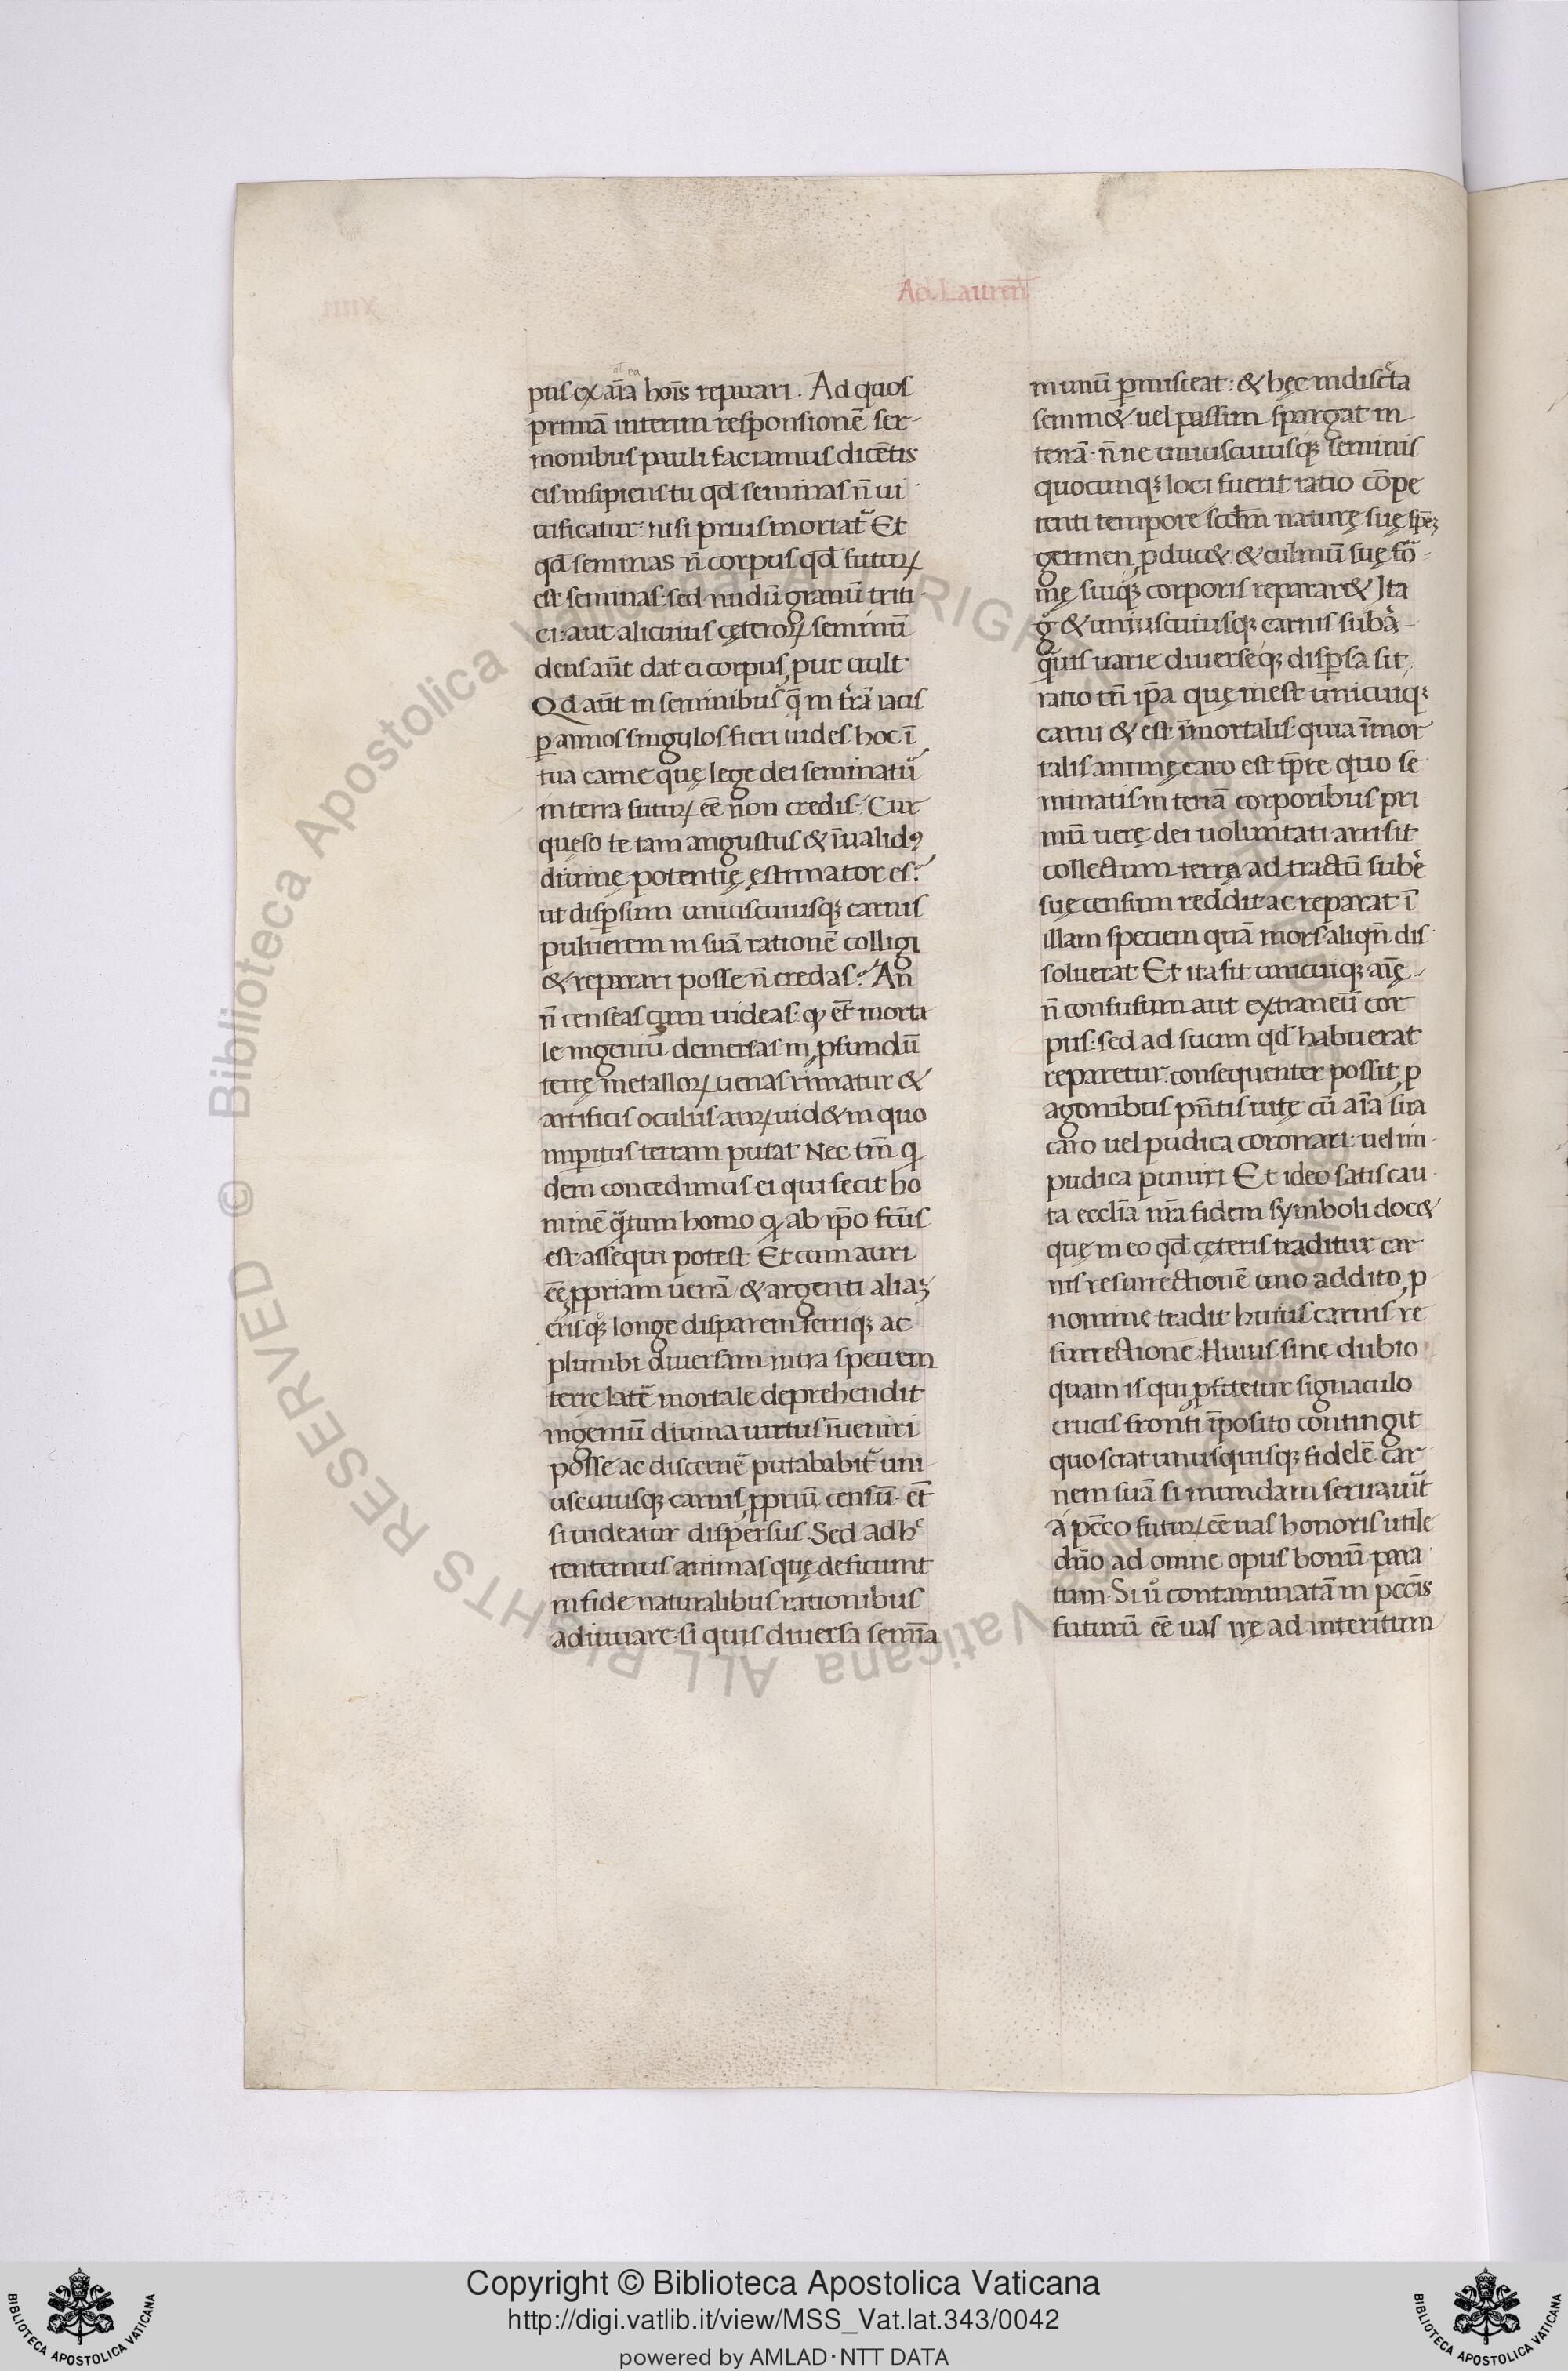 Ad Laureñt
al ea
pus ex aı̄a hoı̄s reparari. Ad quos
primā interim responsionē ser-
monibus pauli faciamus dicētis
eis insipiens tu qd̄ seminas n̄ ui
uificatur: nisi prius moriat᷑ Et
qd̄ seminas n̄ corpus qd̄ futurꝝ
est seminas: sed nudū granū triti
ci: aut alicuius cęterorꝝ seminū
deus aūt dat ei corpus ꝓut uult
Qd aūt in seminibus q̄ in t̄rā iacis
ꝑ annos singulos fieri uides hoc ī
tua carne quę lege dei seminatū
in terra futurꝝ eē non credis: Cur
quęso te tam angustus & īualidꝰ
diuinę potentię ęstimator es?
ut disꝑsum uniuscuiusqꝫ carnis
puluerem in suā rationē colligi
& reparari posse n̄ credas? An
n̄ censeas cum uideas: ꝙ et̄ morta
le ingeniū demersas in ꝓfundū
terrę metallorꝝ uenas rimatur &
artificis oculus aurꝝ uid& in quo
imꝑitus terram putat Nec tm̄ qͥ
dem concedimus ei qui fecit ho
minē qͣ̄tum homo qͥ ab ip̄o fc̄us
est assequi potest Et cum auri
eē ꝓpriam uenā & argenti aliaꝫ
ęrisqꝫ longe disparem ferriqꝫ ac
plumbi diuersam intra speciem
terre latē mortale deprehendit
ingeniū diuina uirtus īueniri
posse ac discernē putababit᷑ uni
uscuiusqꝫ carnis ꝓpriū censū et̄
si uideatur dispersus. Sed adhᶜ
tentemus animas quę deficiunt
in fide naturalibus rationibus
adiuuare. si quis diuersa semı̄a
in unū ꝑmisceat: & hęc indiscᵉta
semin& uel passim spargat in
terrā. n̄ne uniuscuiusqꝫ seminis
quocunqꝫ loci fuerit ratio cōpe
tenti tempore scdm̄ naturę suę spēꝫ
germen ꝓduc& & culmū suę fō
mę suiqꝫ corporis reparar& Ita
gͦ & uniuscuiusqꝫ carnis subᵃ-
qͣuis uarie diuerseqꝫ disꝑsa sit
ratio tn̄ ip̄a quę inest unicuiqꝫ
carni & est īmortalis: quia īmor
talis animę caro est tp̄re quo se
minatis in terrā corporibus pri
mū uerę dei uoluntati arrisit
collectum terrę ad tractū subᵉ
suę censum reddit ac reparat ī
illam speciem quā mors aliqn̄ dis
soluerat Et ita fit unicuiqꝫ aı̄ę
n̄ confusum aut extraneū cor
pus: sed ad suum qd̄ habuerat
reparetur. consequenter possit ꝓ
agonibus pn̄tis uitę cū aı̄a sua
caro uel pudica coronari: uel im-
pudica puniri Et ideo satis cau
ta ecclı̄a nr̄a fidem symboli doc&
quę in eo qd̄ cęteris traditur car
nis resurrectionē uno addito ꝓ
nomine tradit huius carnis re
surrectionē. Huius sine dubio
quam is qui ꝓfitetur signaculo
crucis fronti īposito contingit
quo sciat unusquisqꝫ fidelē car
nem suā si mundam seruauīt
a pēco futurꝝ eē uas honoris utile
dn̄o ad omne opus bonū para
tum. Si uͦ contaminatā in pccı̄s
futurū eē uas irę ad interitum
Copyright © Biblioteca Apostolica Vaticana
http://digi.vatlib.it/view/MSS_Vat.lat.343/0042
powered by AMLAD·NTT DATA